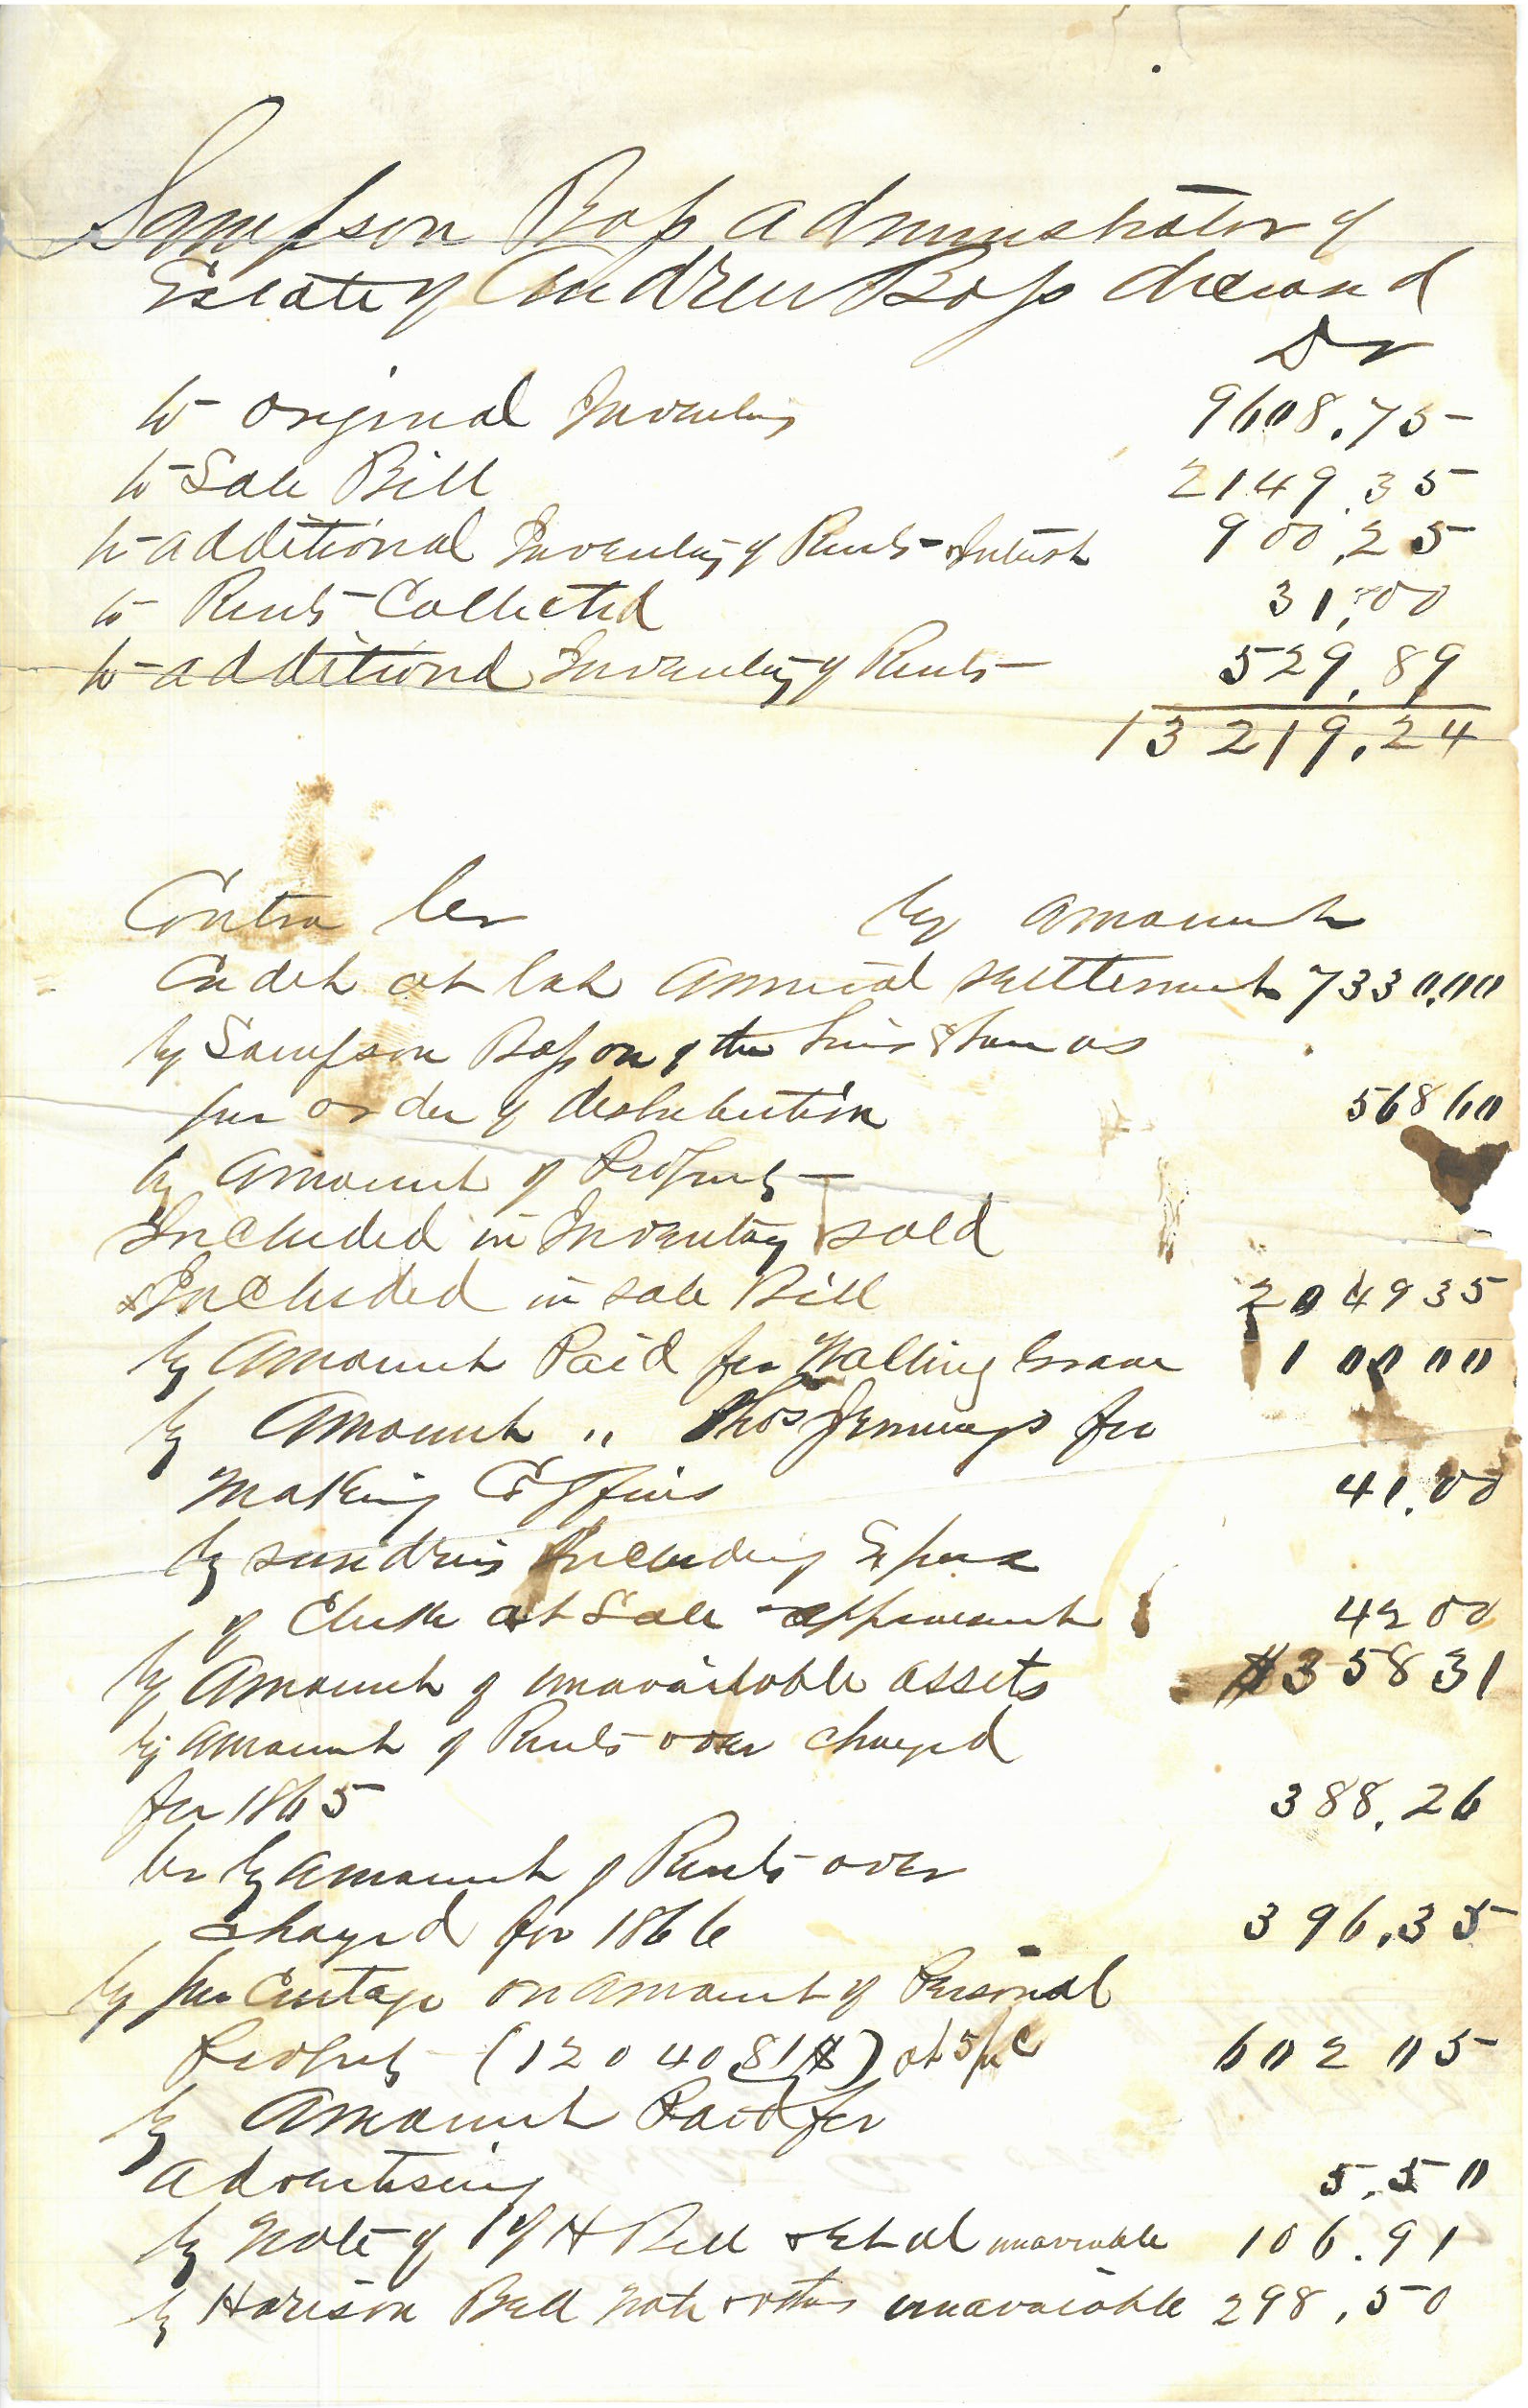 Sampson Bass administrator of
Estate of Andrew Bass deceased
Dr
to original Inventory 9608.75
to Sale Bill 2149.35
to additional Inventory of Rents & Interest 900.25
to Rents Collected 31.00
to additional Inventory of Rents 529.89
13219.24
Contra Cr by amount
Credit at last annual settlement 7330.00
by Sampson Bass one of the heirs share as
per order of distribution 568 60
by amount of Property
Included in Inventory sold
& Included in sale Bill 2049 35
by amount Paid for Walling Grave 100 00
by Amount " Thos Jennings for
making Coffins 41.00
by sundries Including Expense
of Clerk at Sale appraisment 42 00
by Amount of unavailable assets $358 31
by amount of Rents over charged
for 1865 388.26
Cr by amount of Rents over
charged for 1866 396.35
by per Centage on amount of Personal
Property (12040 81 $) at 5 p c 602 05
by Amount Paid for
advertising 5.50
by Note of H Bell & Et al unavailable 106.91
by Harison Bell note & others unavailable 298.50